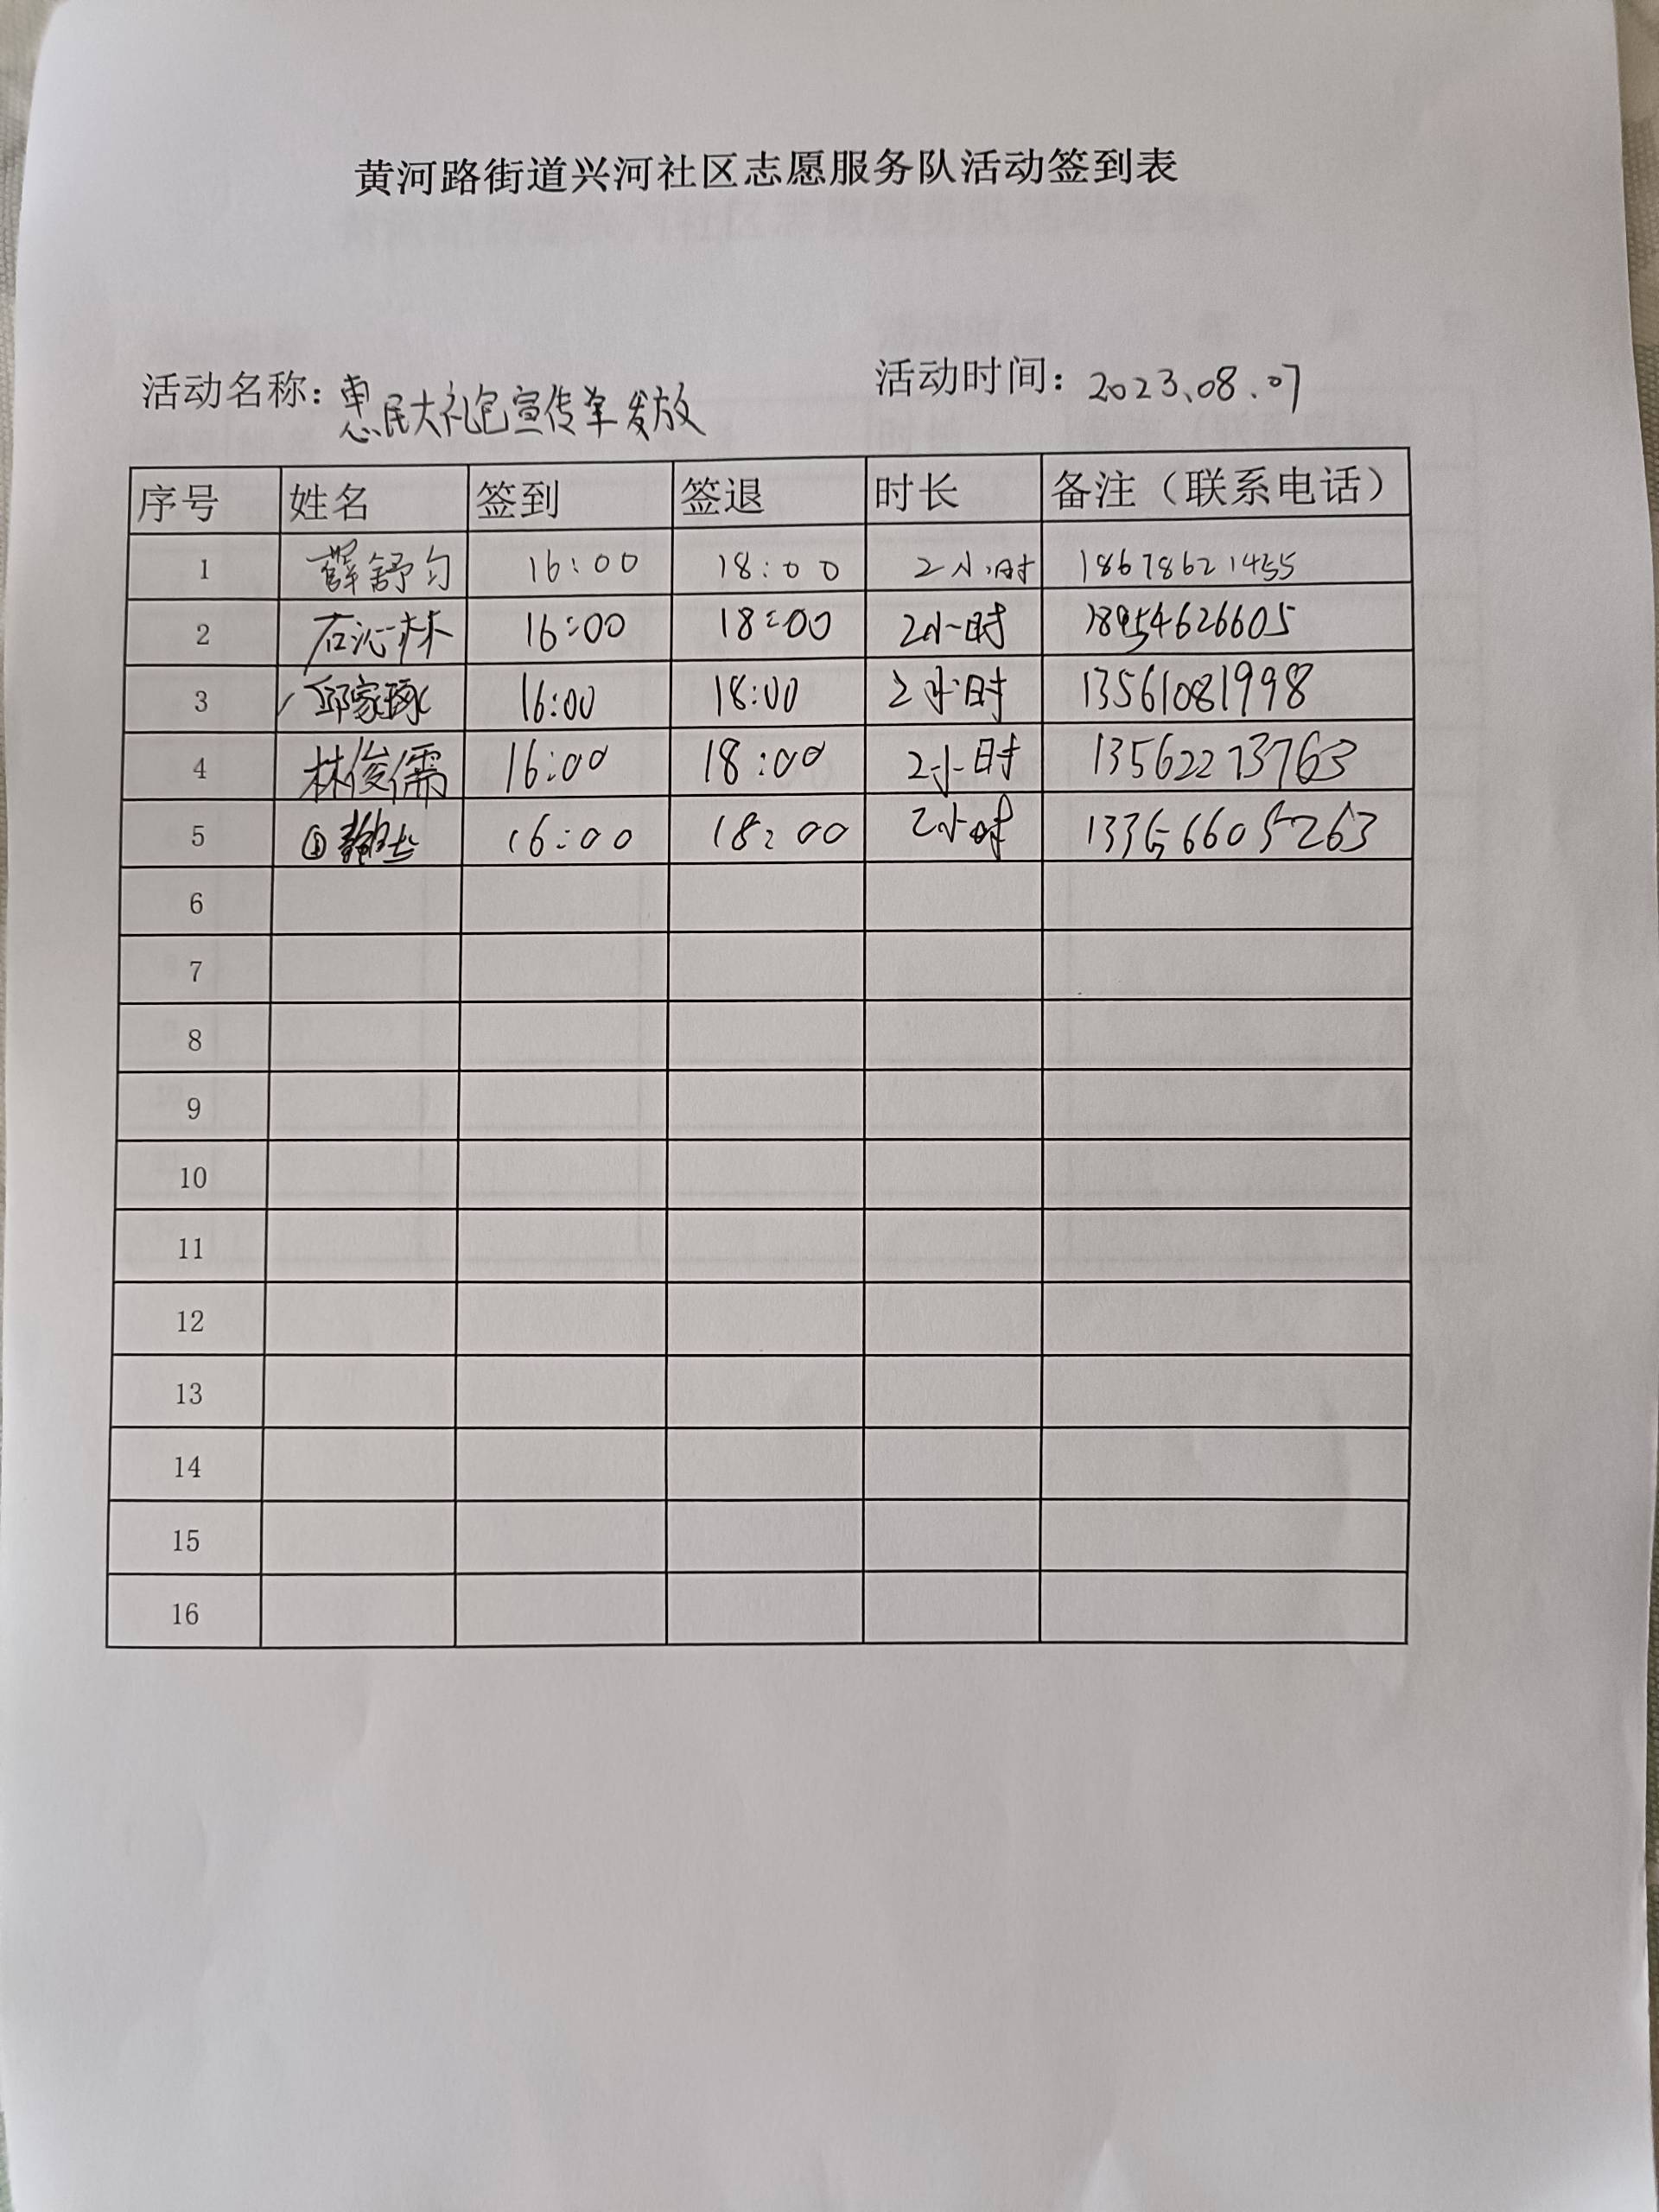 黄河路街道兴河社区志愿服务队活动签到表
活动名称：惠民大礼包宣传单发放 活动时间：2023.08.07
序号 姓名 签到 签退 时长 备注（联系电话）
1 薛舒匀 16:00 18:00 2小时 18678621455
2 石沁林 16:00 18:00 2小时 18954626605
3 邱家琢 16:00 18:00 2小时 13561081998
4 林俊儒 16:00 18:00 2小时 13562273763
5 16:00 18:00 2小时
6
7
8
9
10
11
12
13
14
15
16